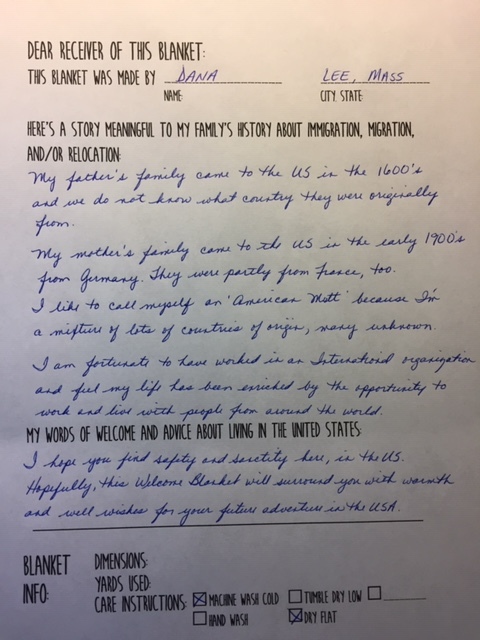 DEAR RECEIVER OF THIS BLANKET:
THIS BLANKET WAS MADE BY DANA LEE, MASS
NAME: CITY, STATE:
HERE'S A STORY MEANINGFUL TO MY FAMILY'S HISTORY ABOUT IMMIGRATION, MIGRATION,
AND/OR RELOCATION:
My father's family came to the US in the 1600's
and we do not know what country they were originally
from.
My mother's family came to the US in the early 1900's
from Germany. They were partly from France, too.
I like to call myself an 'American Mutt' because I'm
a mixture of lots of countries of origin, many unknown.
I am fortunate to have worked in an International organization
and feel my life has been enriched by the opportunity to
work and live with people from around the world.
MY WORDS OF WELCOME AND ADVICE ABOUT LIVING IN THE UNITED STATES:
I hope you find safety and sanctity here, in the US.
Hopefully, this Welcome Blanket will surround you with warmth
and well wishes for your future adventure in the USA.
BLANKET INFO:
DIMENSIONS:
YARDS USED:
CARE INSTRUCTIONS: MACHINE WASH COLD TUMBLE DRY LOW
HAND WASH DRY FLAT